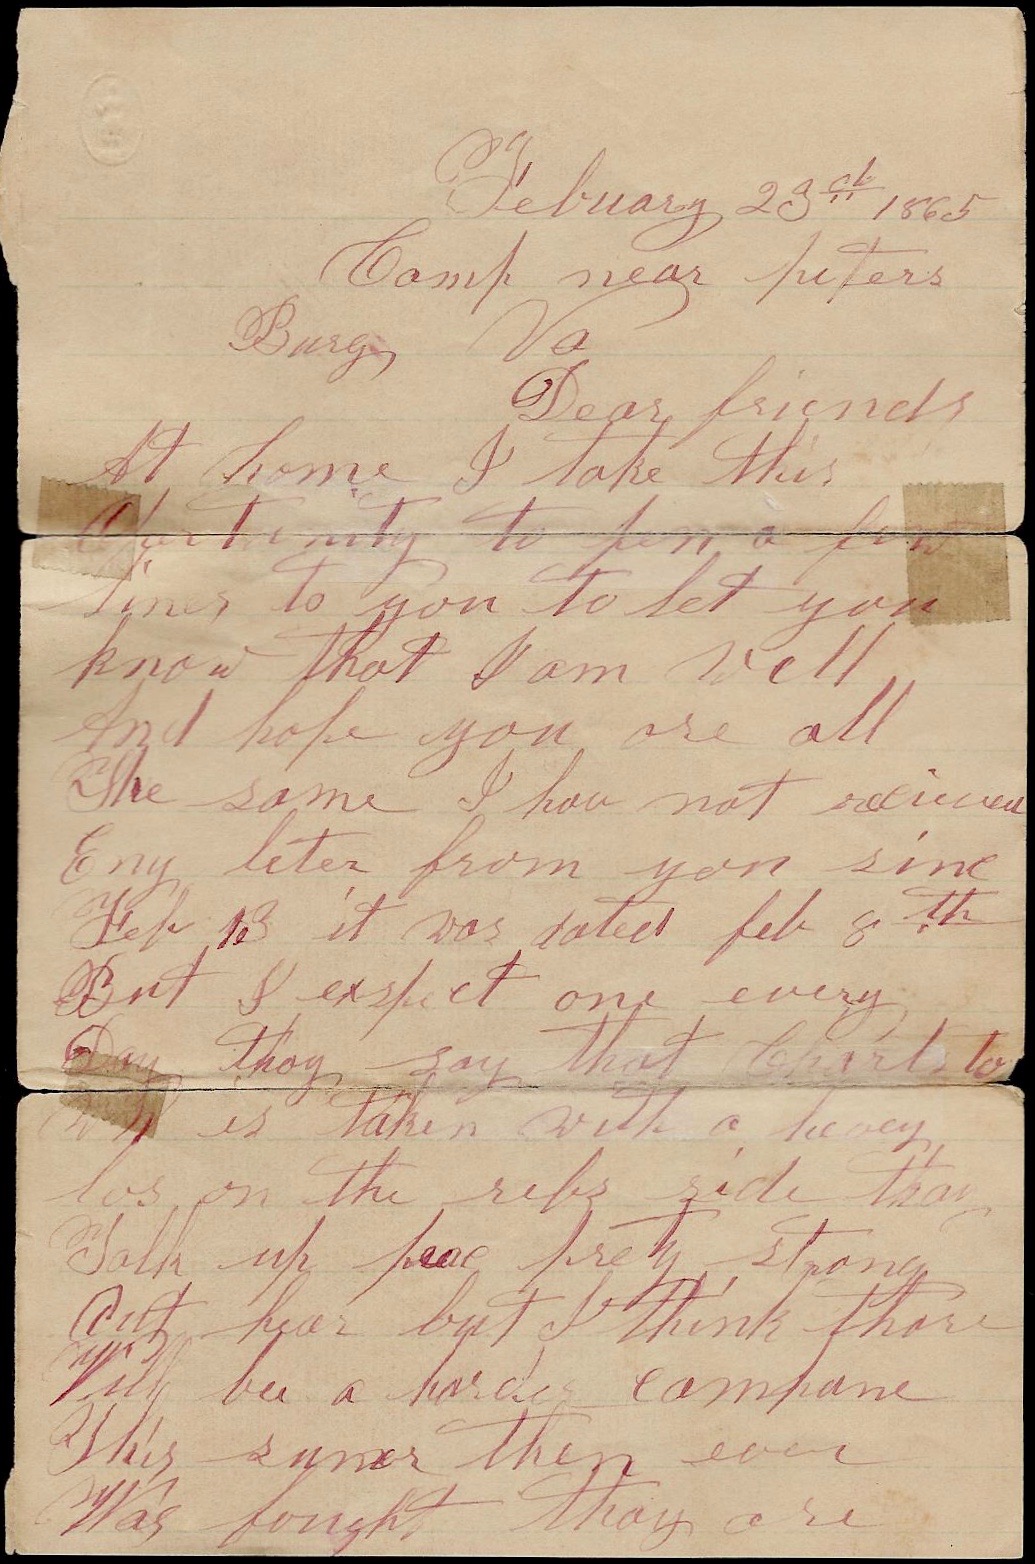 Febuary 23 st 1865
Camp near peters
Burg Va
Dear friends
At home I take this
Oportunity to pen a few
lines to you to let you
know that I am well
And hope you are all
The same I hav not recieved
Eny leter from you sinc
Feb 13 it was dated feb 8 th
But I exspect one every
Day thay say that Charls to
is taken with a hevey
los on the rebs side thay
Talk up peac prety strong
Out hear but I think thare
Will be a harder campane
This sumer then ever
Was fought thay are